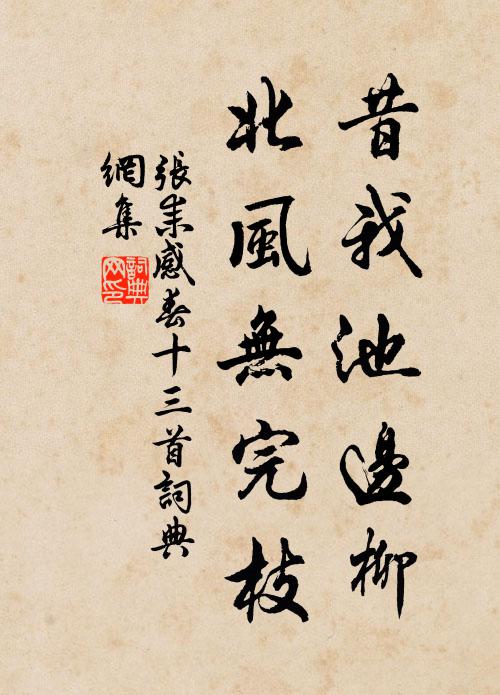 昔我池邊柳
北風無完枝
張耒感春十三首詞典
網集
詞典網印